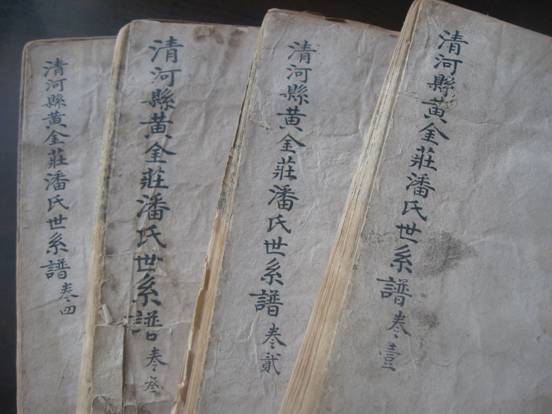 清河縣黃金莊潘氏世系譜 卷壹
清河縣黃金莊潘氏世系譜 卷貳
清河縣黃金莊潘氏世系譜 卷叄
清河縣黃金莊潘氏世系譜 卷四